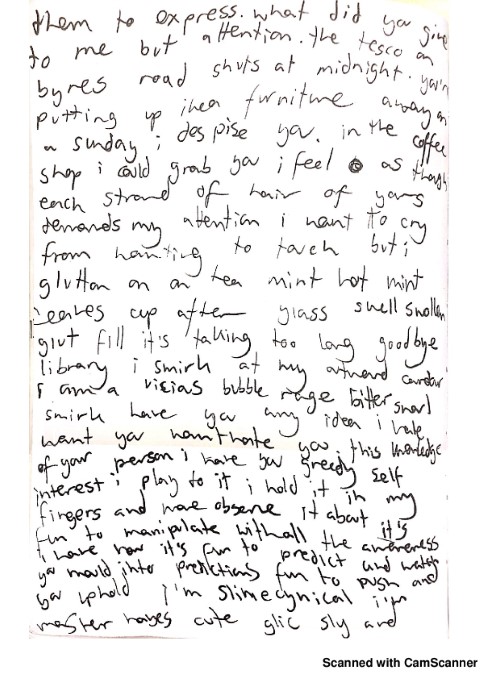 them to express. what did you give
to me but attention. the tesco on
byres road shuts at midnight. you'r
putting up ikea furniture away on
a sunday i despise you. in the coffee
shop i could grab you i feel as though
each strand of hair of yours
demands my attention i want to cry
from wanting to touch but i
glutton on on tea mint hot mint
leaves cup after glass swell swollen
glut fill it's taking too long goodbye
library i smirk at my
i am a vicias bubble rage bitter snarl
smirk have you any idea i hate
want you wanthate you, this knowledge
of your person i have you greedy self
interest i play to it i hold it in my
fingers and move observe it about it's
fun to manipulate withall the awareness
i have now it's fun to predict and watch
you mould into predictions fun to push and
you uphold i'm slimecynical i'm
master cute glic sly and
Scanned with CamScanner